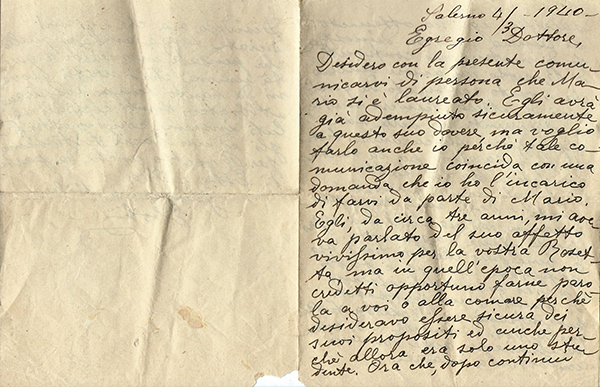 Salerno 4/3 - 1940 -
Egregio Dottore,
Desidero con la presente comu-
nicarvi di persona che Ma-
rio si è laureato. Egli avrà
già adempiuto sicuramente
a questo suo dovere ma voglio
farlo anche io perchè tale co-
municazione coincida con una
domanda che io ho l'incarico
di farvi da parte di Mario.
Egli, da circa tre anni, mi ave-
va parlato del suo affetto
vivissimo per la vostra Roset-
ta ma in quell'epoca non
credetti opportuno farne paro
la a voi o alla comare perchè
desideravo essere sicura dei
suoi propositi ed anche per-
chè allora era solo uno stu-
dente. Ora che, dopo continui